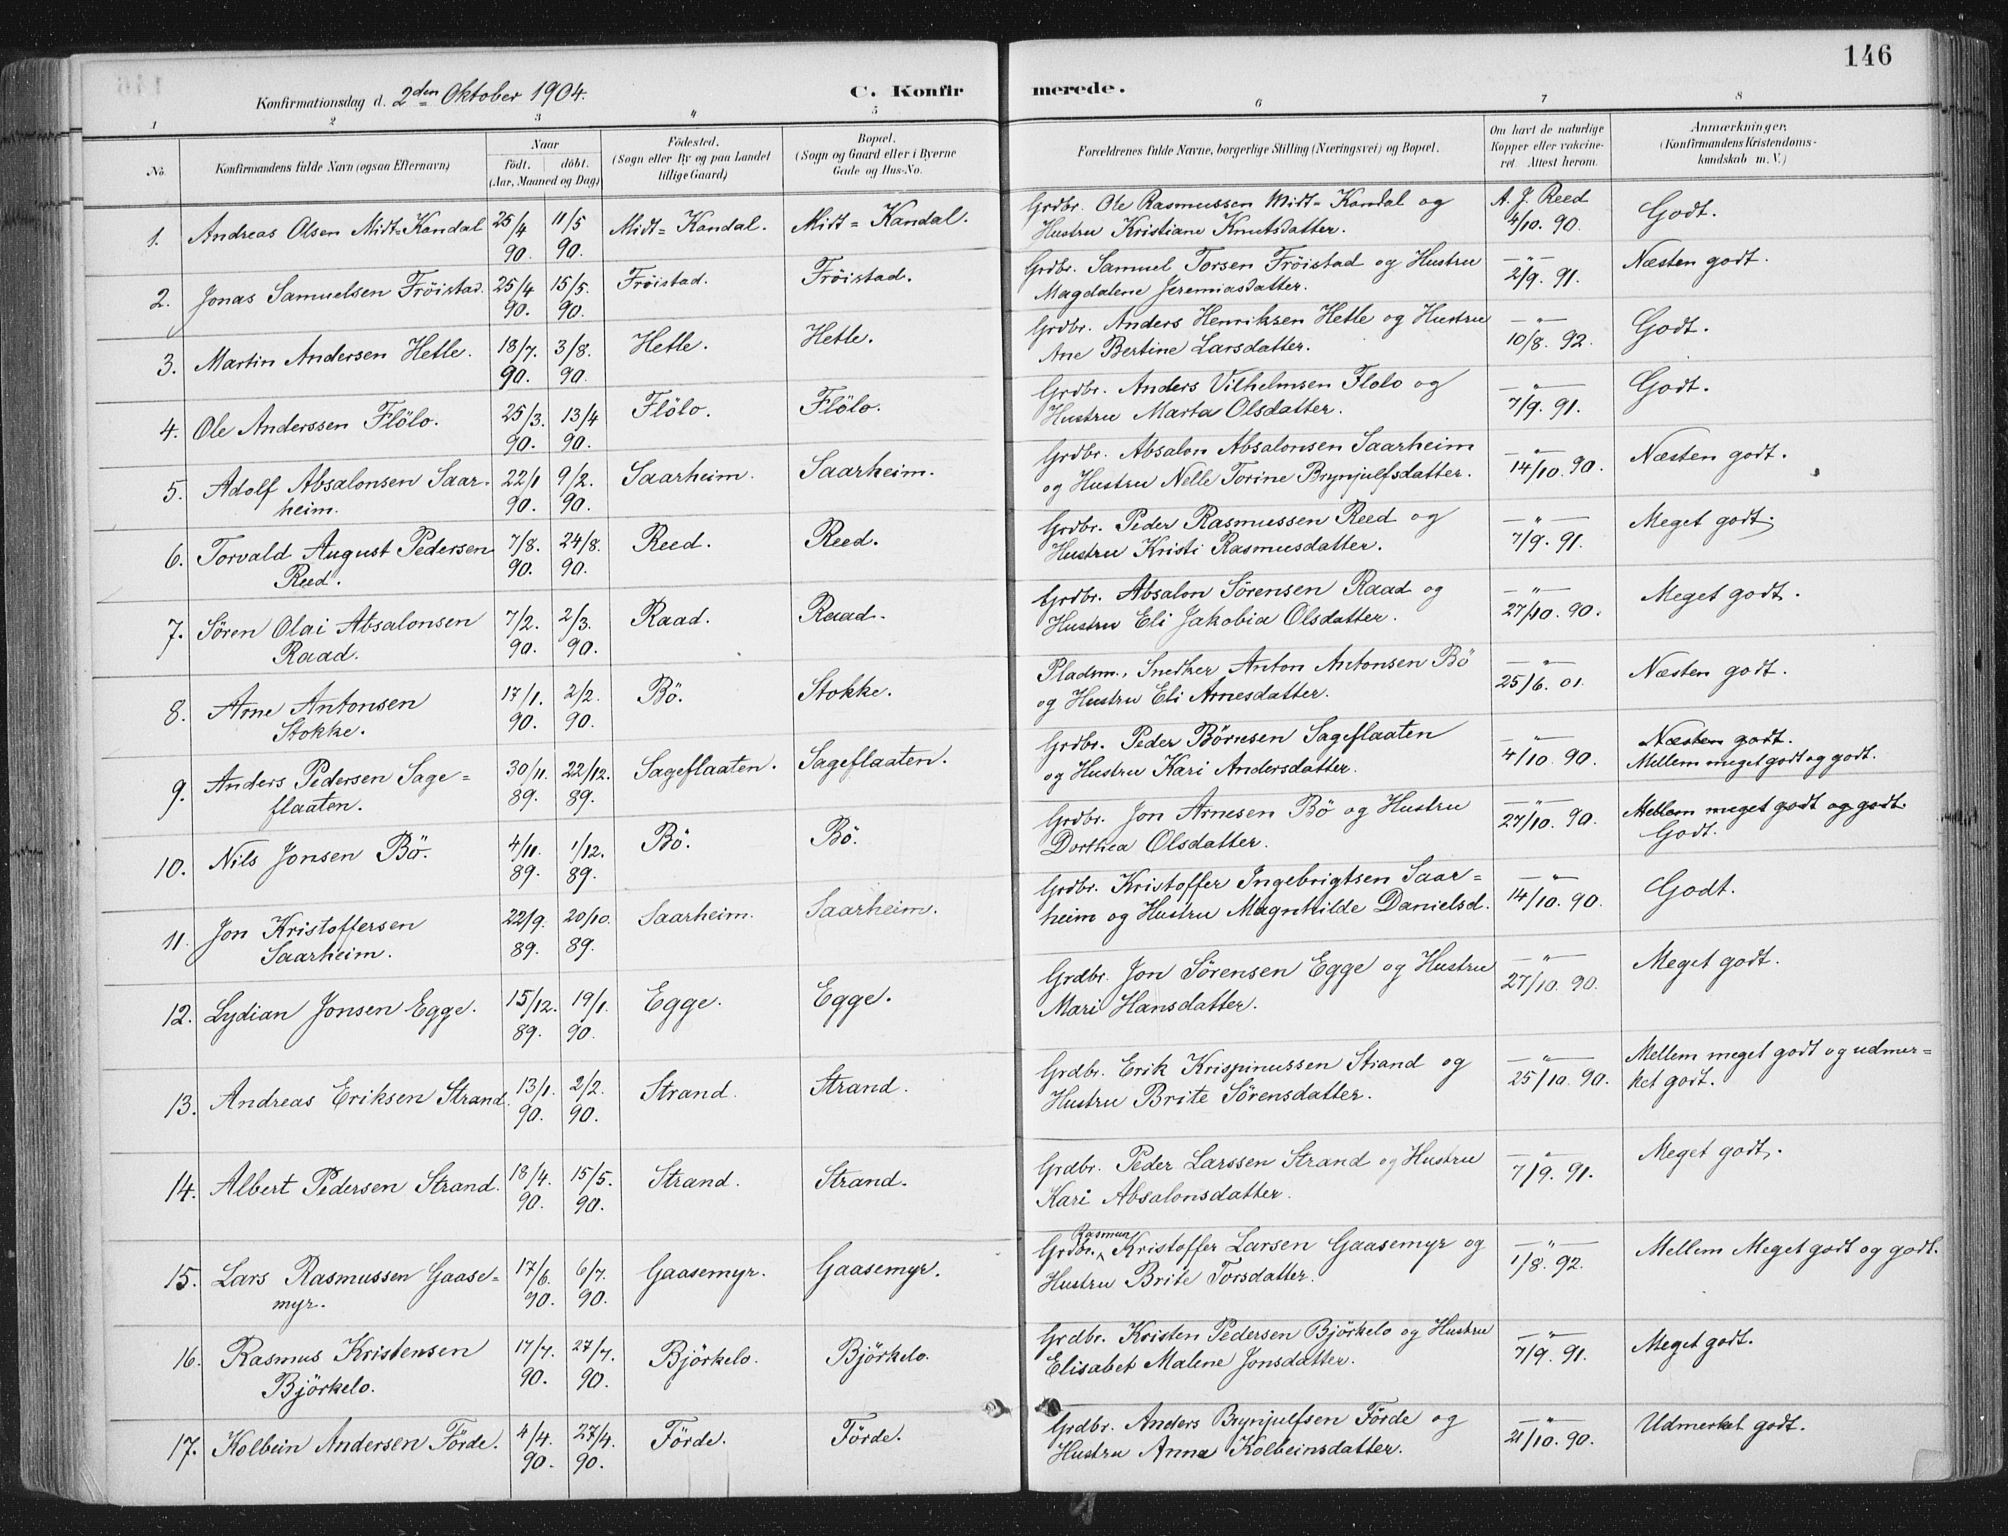 146
Konfirmationsdag d. 2den Oktober 1904. C. Konfirmerede.
1 2 3 4 5 6 7 8
No. | Konfirmandens fulde Navn (ogsaa Efternavn) | Naar født. døbt. (Aar, Maaned og Dag) | Fødested. (Sogn eller By og paa Landet tillige Gaard) | Bopæl. (Sogn og Gaard eller i Byerne Gade og Hus-No. | Forældrenes fulde Navne, borgerlige Stilling (Næringsvei) og Bopæl. | Om havt de naturlige Kopper eller vakcineret. Attest herom. | Anmærkninger. (Konfirmandens Kristendomskundskab m. V.)
1. Andreas Olsen Midt-Kandal | 25/4 90. | 11/5 90. | Midt-Kandal. | Midt-Kandal. | Grdbr. Ole Rasmussen Midt-Kandal og Hustru Kristiane Knutsdatter. | A. J. Reed 4/10. 90. | Godt.
2. Jonas Samuelsen Fröistad. | 25/4 90. | 15/5. 90. | Fröistad. | Fröistad. | Grdbr. Samuel Torsen Fröistad og Hustru Magdalene Jeremiasdatter. | — " — 2/9. 91. | Næsten godt.
3. Martin Andersen Hetle. | 18/7. 90. | 3/8. 90. | Hetle. | Hetle. | Grdbr. Anders Henriksen Hetle og Hustru Ane Bertine Larsdatter. | — " — 10/8. 92. | Godt.
4. Ole Anderssen Flölo. | 25/3. 90. | 13/4 90. | Flölo. | Flölo. | Grdbr. Anders Vilhelmsen Flolo og Hustru Marta Olsdatter. | — " — 7/9. 91. | Godt.
5. Adolf Absalonsen Saarheim. | 22/1 90. | 9/2. 90. | Saarheim. | Saarheim. | Grdbr. Absalon Absalonsen Saarheim og Hustru Nelle Torine Brynjulfsdatter. | — " — 14/10. 90. | Næsten godt.
6. Torvald August Pedersen Reed. | 7/8. 90. | 24/8. 90. | Reed. | Reed. | Grdbr. Peder Rasmussen Reed og Hustru Kristi Rasmusdatter. | — " — 7/9. 91. | Meget godt.
7. Sören Olai Absalonsen Raad. | 7/2. 90. | 2/3. 90. | Raad. | Raad. | Grdbr. Absalon Sörensen Raad og Hustru Eli Jakobia Olsdatter. | — " — 27/10. 90. | Meget godt.
8. Arne Antonsen Stokke. | 17/1. 90. | 2/2. 90. | Bö. | Stokke. | Pladsm., Snedker Anton Antonsen Bö og Hustru Eli Arnesdatter. | — " — 25/6. 01. | Næsten godt.
9. Anders Pedersen Sageflaaten. | 30/11. 89. | 22/12. 89. | Sageflaaten. | Sageflaaten. | Grdbr. Peder Börnesen Sageflaaten og Hustru Kari Andersdatter. | — " — 4/10. 90. | Næsten godt. Mellem meget godt og godt.
10. Nils Jonsen Bö. | 4/11. 89. | 1/12. 89. | Bö. | Bö. | Grdbr. Jon Arnesen Bö og Hustru Dorthea Olsdatter. | — " — 27/10. 90. | Mellem meget godt og godt. Godt.
11. Jon Kristoffersen Saarheim. | 22/9. 89. | 20/10. 89. | Saarheim. | Saarheim. | Grdbr. Kristoffer Ingebrigtsen Saarheim og Hustru Magnhilde Danielsd. | — " — 14/10. 90. | Godt.
12. Lydian Jonsen Egge. | 15/12. 89. | 19/1. 90. | Egge. | Egge. | Grdbr. Jon Sörensen Egge og Hustru Mari Hansdatter. | — " — 27/10. 90. | Meget godt.
13. Andreas Eriksen Strand. | 13/1. 90. | 2/2. 90. | Strand. | Strand. | Grdbr. Erik Krispinussen Strand og Hustru Brite Sörensdatter. | — " — 25/10. 90. | Mellem meget godt og udmerket godt.
14. Albert Pedersen Strand. | 18/4. 90. | 15/5. 90. | Strand. | Strand. | Grdbr. Peder Larssen Strand og Hustru Kari Absalonsdatter. | — " — 7/9. 91. | Meget godt.
15. Lars Rasmussen Gaasemyr. | 17/6. 90. | 6/7. 90. | Gaasemyr. | Gaasemyr. | Grdbr. Rasmus Kristoffer Larsen Gaasemyr og Hustru Brite Torsdatter. | — " — 1/8. 92. | Mellem Meget godt og godt.
16. Rasmus Kristensen Björkelo. | 17/7. 90. | 27/7. 90. | Björkelo. | Björkelo. | Grdbr. Kristen Pedersen Björkelo og Hustru Elisabet Malene Jonsdatter. | — " — 7/9. 91. | Meget godt.
17. Kolbein Andersen Förde. | 4/4. 90. | 27/4. 90. | Förde. | Förde. | Grdbr. Anders Brynjulfsen Förde og Hustru Anna Kolbeinsdatter. | — " — 21/10. 90. | Udmerket godt.